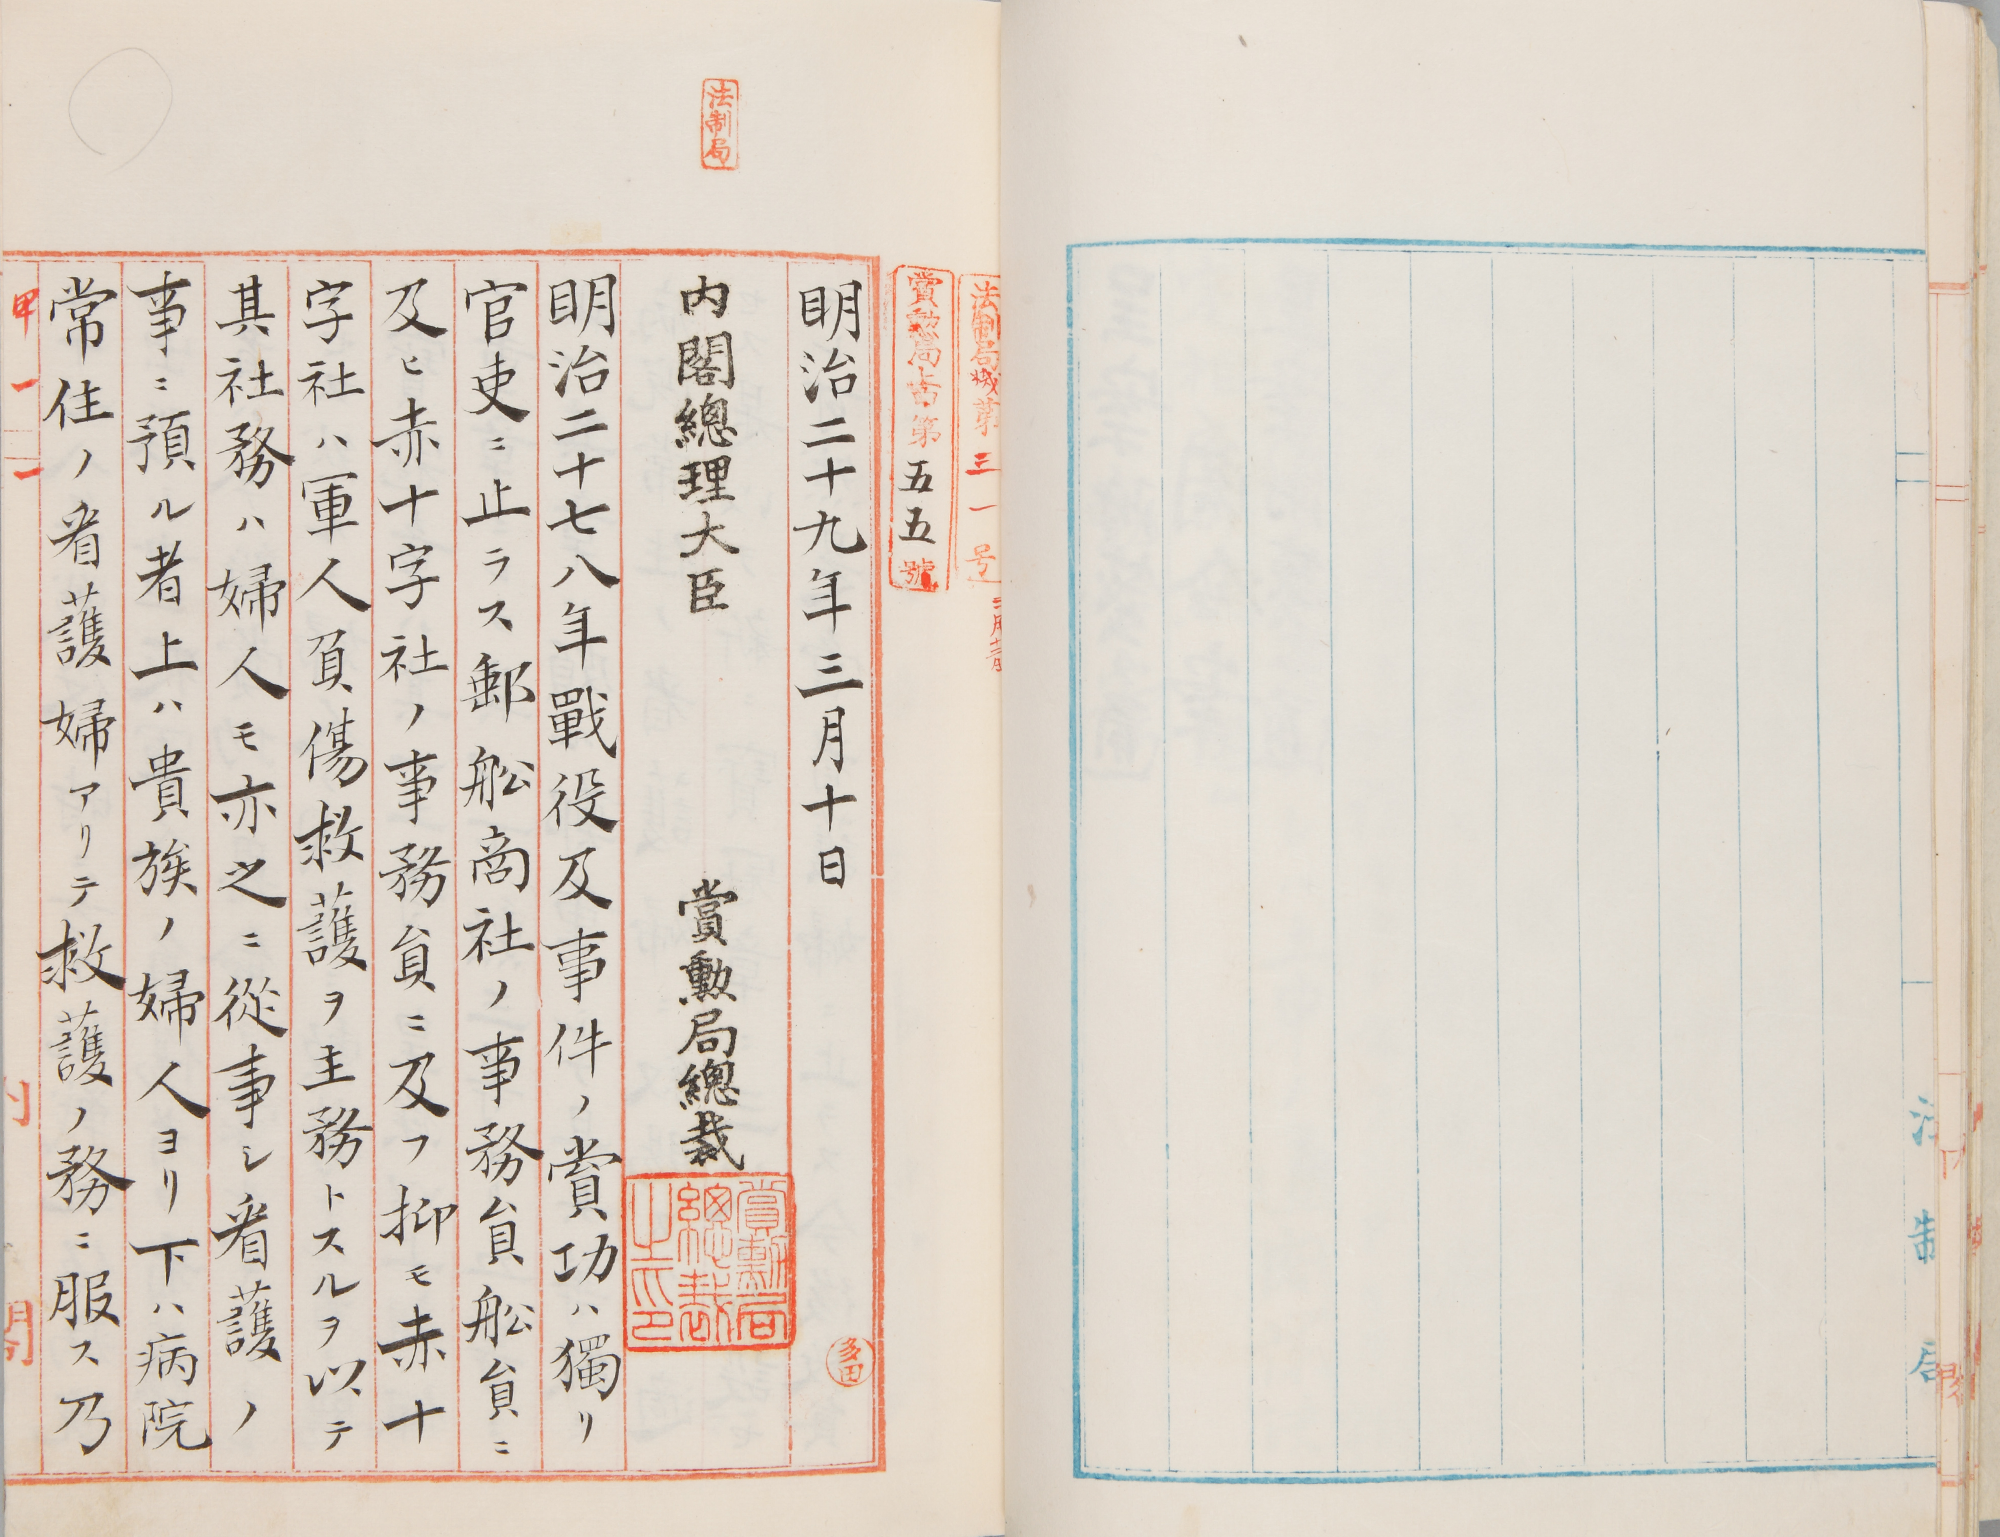 法制局
法制局
法制局械第三一号
賞勲局古第五五號
明治二十九年三月十日
內閣總理大臣 賞勳局總裁
賞勳局總裁之印
多田
明治二十七八年戰役及事件ノ賞功ハ獨リ
官吏ニ止ラス郵舩商社ノ事務員舩員ニ
及ヒ赤十字社ノ事務員ニ及フ抑モ赤十
字社ハ軍人負傷救護ヲ主務トスルヲ以テ
其社務ハ婦人モ亦之ニ從事シ看護ノ
事ニ預ル者上ハ貴族ノ婦人ヨリ下ハ病院
常住ノ看護婦アリテ救護ノ務ニ服ス乃
甲一一
內閣